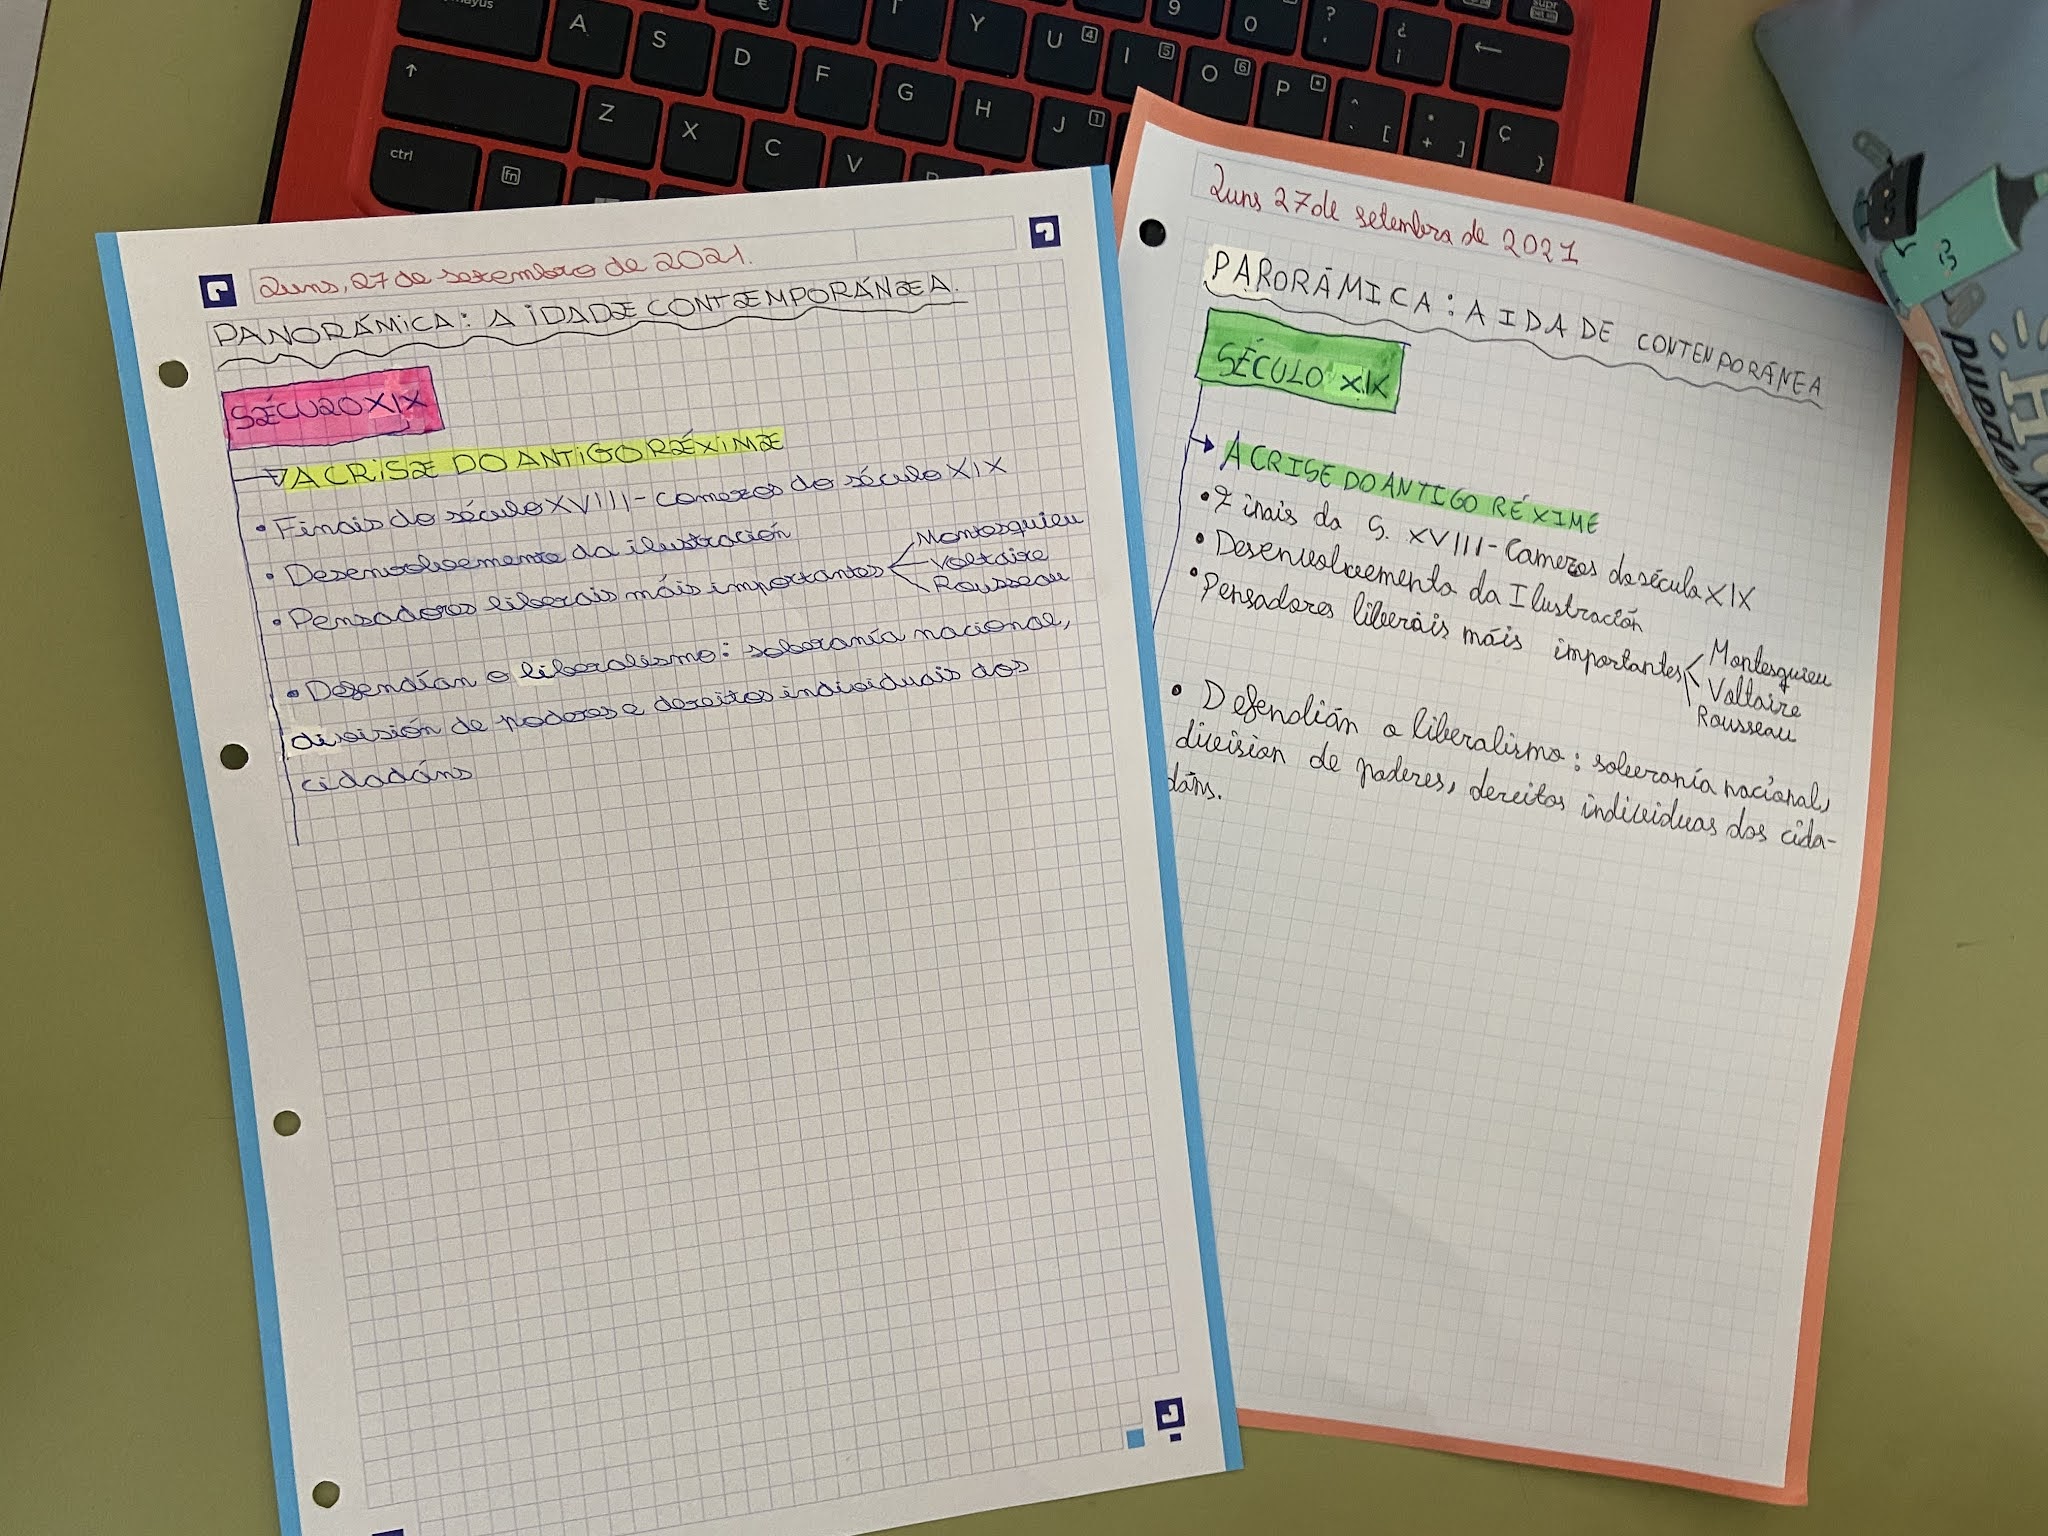 Luns, 27 de setembro de 2021.
PANORÁMICA: A IDADE CONTEMPORÁNEA.
SÉCULO XIX
A CRISE DO ANTIGO RÉXIME
• Finais do século XVIII - comezos do século XIX
• Desenvolvemento da ilustración
• Pensadores liberais máis importantes
Montesquieu
Voltaire
Rousseau
• Defendían o liberalismo: soberanía nacional,
división de poderes e dereitos individuais dos
cidadáns
Luns 27 de setembro de 2021
PARORÁMICA: A IDADE CONTENPORÁNEA
SÉCULO XIX
A CRISE DO ANTIGO RÉXIME
• Finais do S. XVIII - Comezos do século XIX
• Desenvolvemento da Ilustración
• Pensadores liberáis máis importantes
Montesquieu
Voltaire
Rousseau
• Defendián o liberalismo: soberanía nacional,
division de poderes, dereitos individuas dos cida-
dáns.
mayus
€
9
0
?
'
¿
¡
←
supr
A
S
D
F
T
G
Y
H
U 4
J 1
I 5
O 6
P
^
`
[
+
]
Ç
}
↑
Z
X
C
V
ctrl
fn
puede